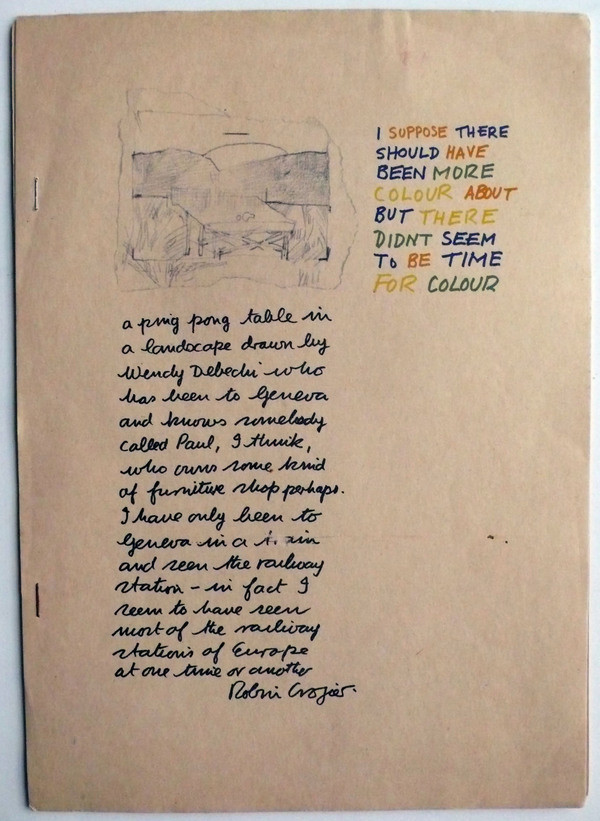 I SUPPOSE THERE
SHOULD HAVE
BEEN MORE
COLOUR ABOUT
BUT THERE
DIDNT SEEM
To BE TIME
FOR COLOUR
a ping pong table in
a landscape drawn by
Wendy Debechi who
has been to Geneva
and knows somebody
called Paul, I think,
who owns some kind
of furniture shop perhaps.
I have only been to
Geneva in a train
and seen the railway
station – in fact I
seem to have seen
most of the railway
stations of Europe
at one time or another
Robin Crozier.